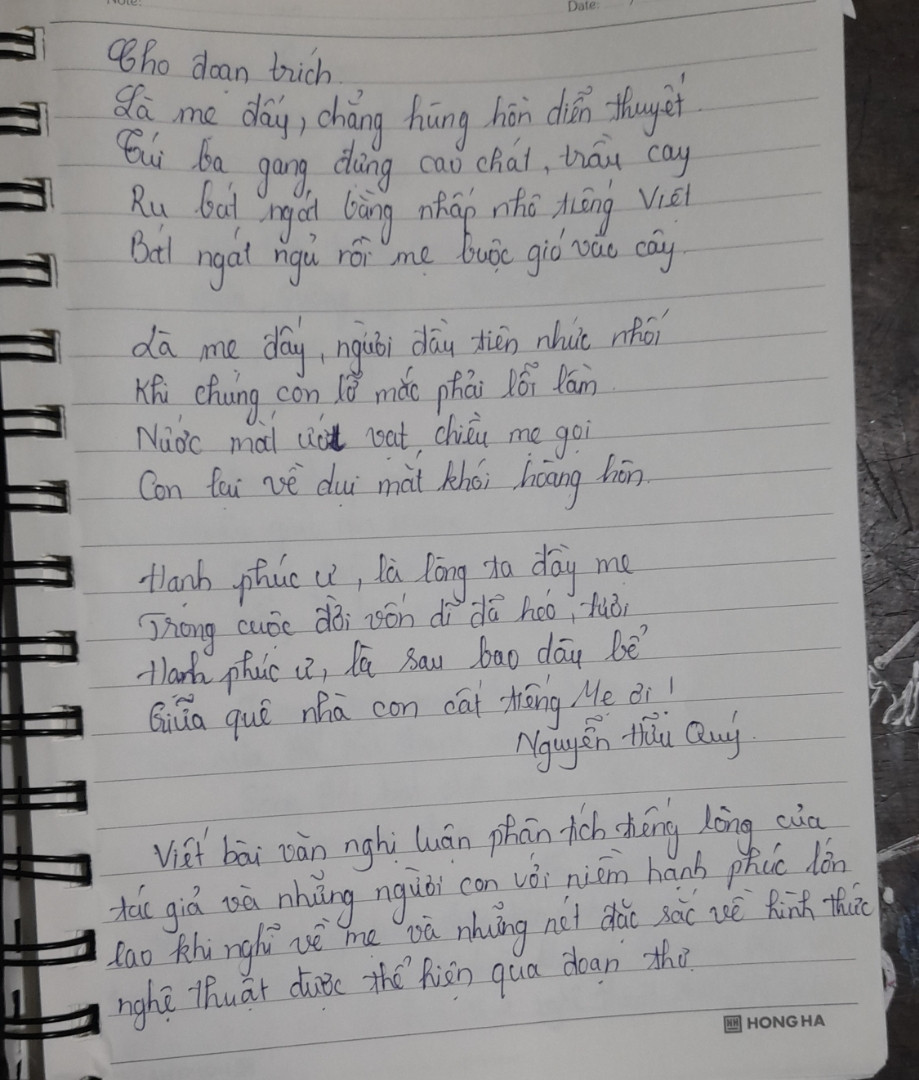 Note:
Date:
Cho đoạn trích
Là mẹ đấy, chẳng hùng hồn diễn thuyết
Túi ba gang đựng cau chát, trầu cay
Ru bát ngát bằng nhấp nhô tiếng Việt
Bát ngát ngủ rồi mẹ buộc gió vào cây
Là mẹ đấy, người đầu tiên nhức nhối
Khi chúng con lỡ mắc phải lỗi lầm
Nước mắt ướt vạt chiều mẹ gọi
Con lại về dụi mắt khói hoàng hôn.
Hạnh phúc ư, là lòng ta đầy mẹ
Trong cuộc đời vốn dĩ đã héo, tươi
Hạnh phúc ư, là sau bao dâu bể
Giữa quê nhà con cất tiếng Mẹ ơi!
Nguyễn Hữu Quý.
Viết bài văn nghị luận phân tích tiếng lòng của
tác giả và những người con với niềm hạnh phúc lớn
lao khi nghĩ về mẹ và những nét đặc sắc về hình thức
nghệ thuật được thể hiện qua đoạn thơ.
HH HONG HA